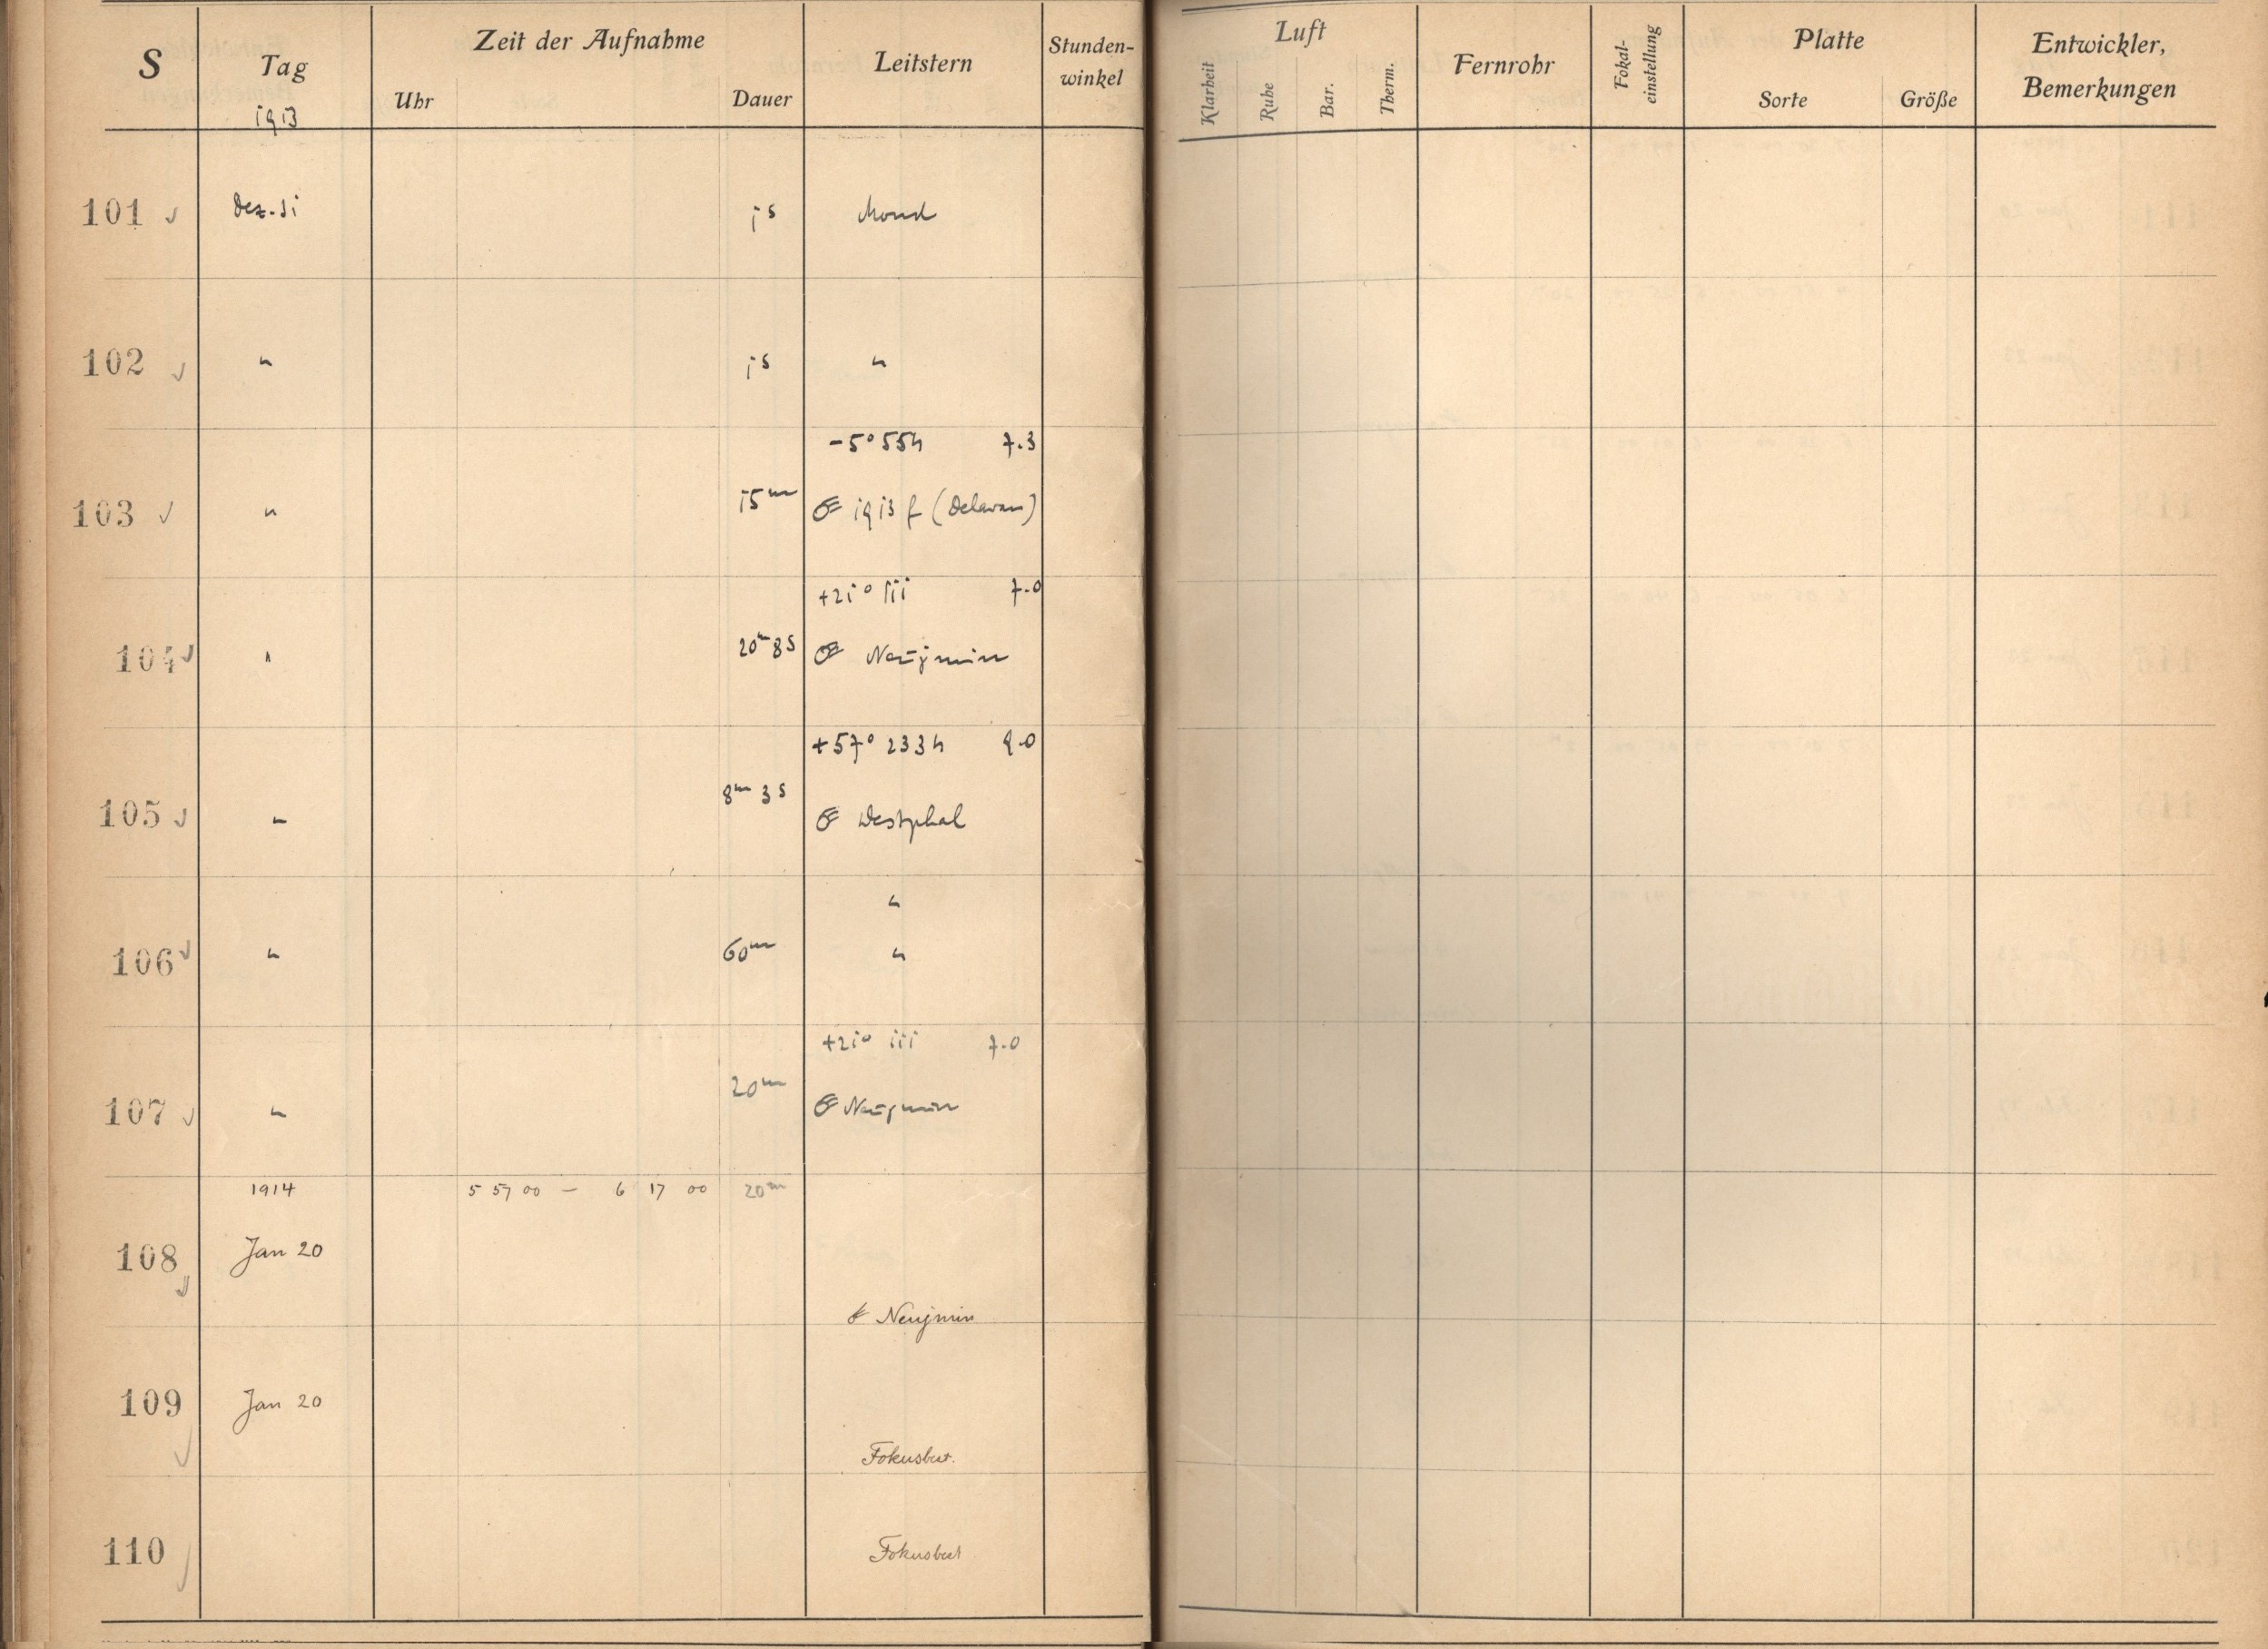 S
Tag
1913
Zeit der Aufnahme
Uhr
Dauer
Leitstern
Stunden-
winkel
Luft
Klarheit
Ruhe
Bar.
Therm.
Fernrohr
Fokal-
einstellung
Platte
Sorte
Größe
Entwickler,
Bemerkungen
101 ✓ Dez. 31 1s Mond
102 ✓ " 1s "
-5° 554 7.3
103 ✓ " 15m ☄ 1913 f (Delavan)
+21° 111 7.0
104 ✓ " 20m 8s ☄ Neujmin
+57° 2334 9.0
105 ✓ " 8m 3s ☄ Westphal
"
106 ✓ " 60m "
+21° 111 7.0
107 ✓ " 20m ☄ Neujmin
1914 5 57 00 — 6 17 00 20m
108 ✓ Jan 20
☄ Neujmin
109 ✓ Jan 20
Fokusbest.
110 ✓ Fokusbest